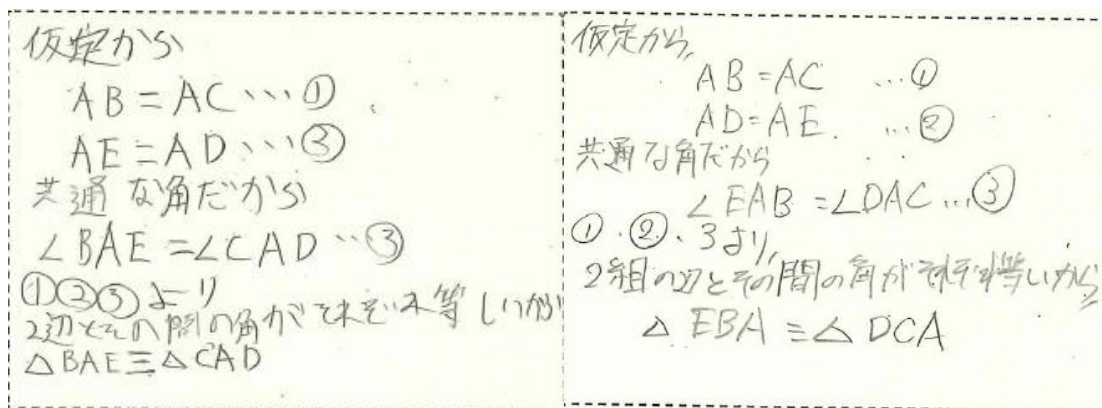 仮定から
AB=AC…①
AE=AD…③
共通な角だから
∠BAE=∠CAD…③
①②③より
2辺とその間の角がそれぞれ等しいから
△BAE≡△CAD
仮定から,
AB=AC …①
AD=AE. …②
共通な角だから
∠EAB=∠DAC…③
①.②.3より,
2組の辺とその間の角がそれぞれ等しいから
△EBA≡△DCA